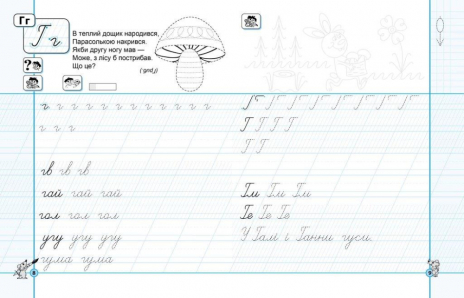 Гг
Г г
В теплий дощик народився,
Парасолькою накрився.
Якби другу ногу мав —
Може, з лісу б пострибав.
Що це?
(Гриб)
г г г г г г г г г г г г г
г г г
гв гв гв
гай гай гай
гол гол гол
угу угу угу
гума гума
Г Г Г Г Г Г Г Г Г
Г Г Г Г
Г Г
Ге Ге Ге
У Галі і Ганни гуси.